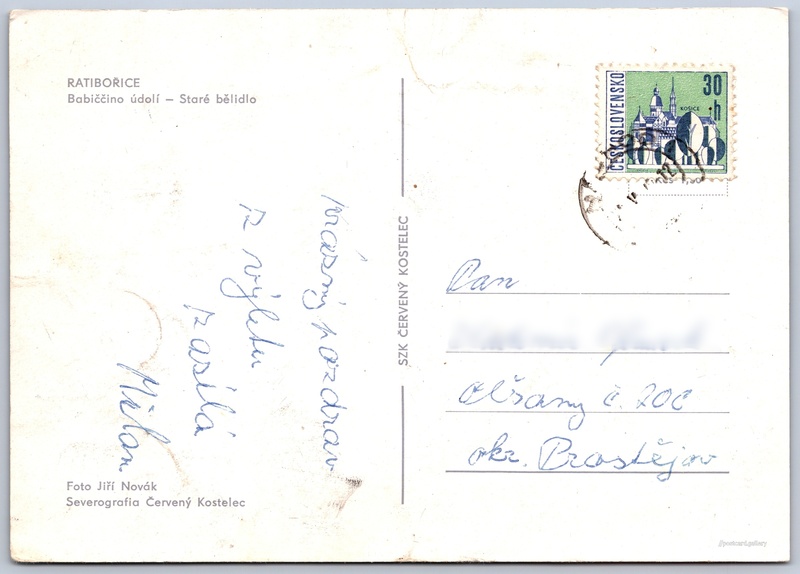 RATIBOŘICE
Babiččino údolí – Staré bělidlo
Krásný pozdrav
z výletu
zasílá
Milan
Foto Jiří Novák
Severografia Červený Kostelec
SZK ČERVENÝ KOSTELEC
ČESKOSLOVENSKO
30
h
KOŠICE
Pan
Olšany č. 200
okr. Prostějov